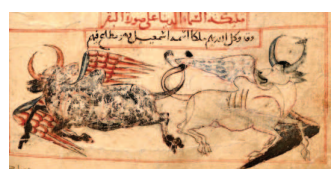 ملائكة السماء الدنيا على صورة البقر
وقد وكل الله بهم ملكا اسمه اسمعيل وهو